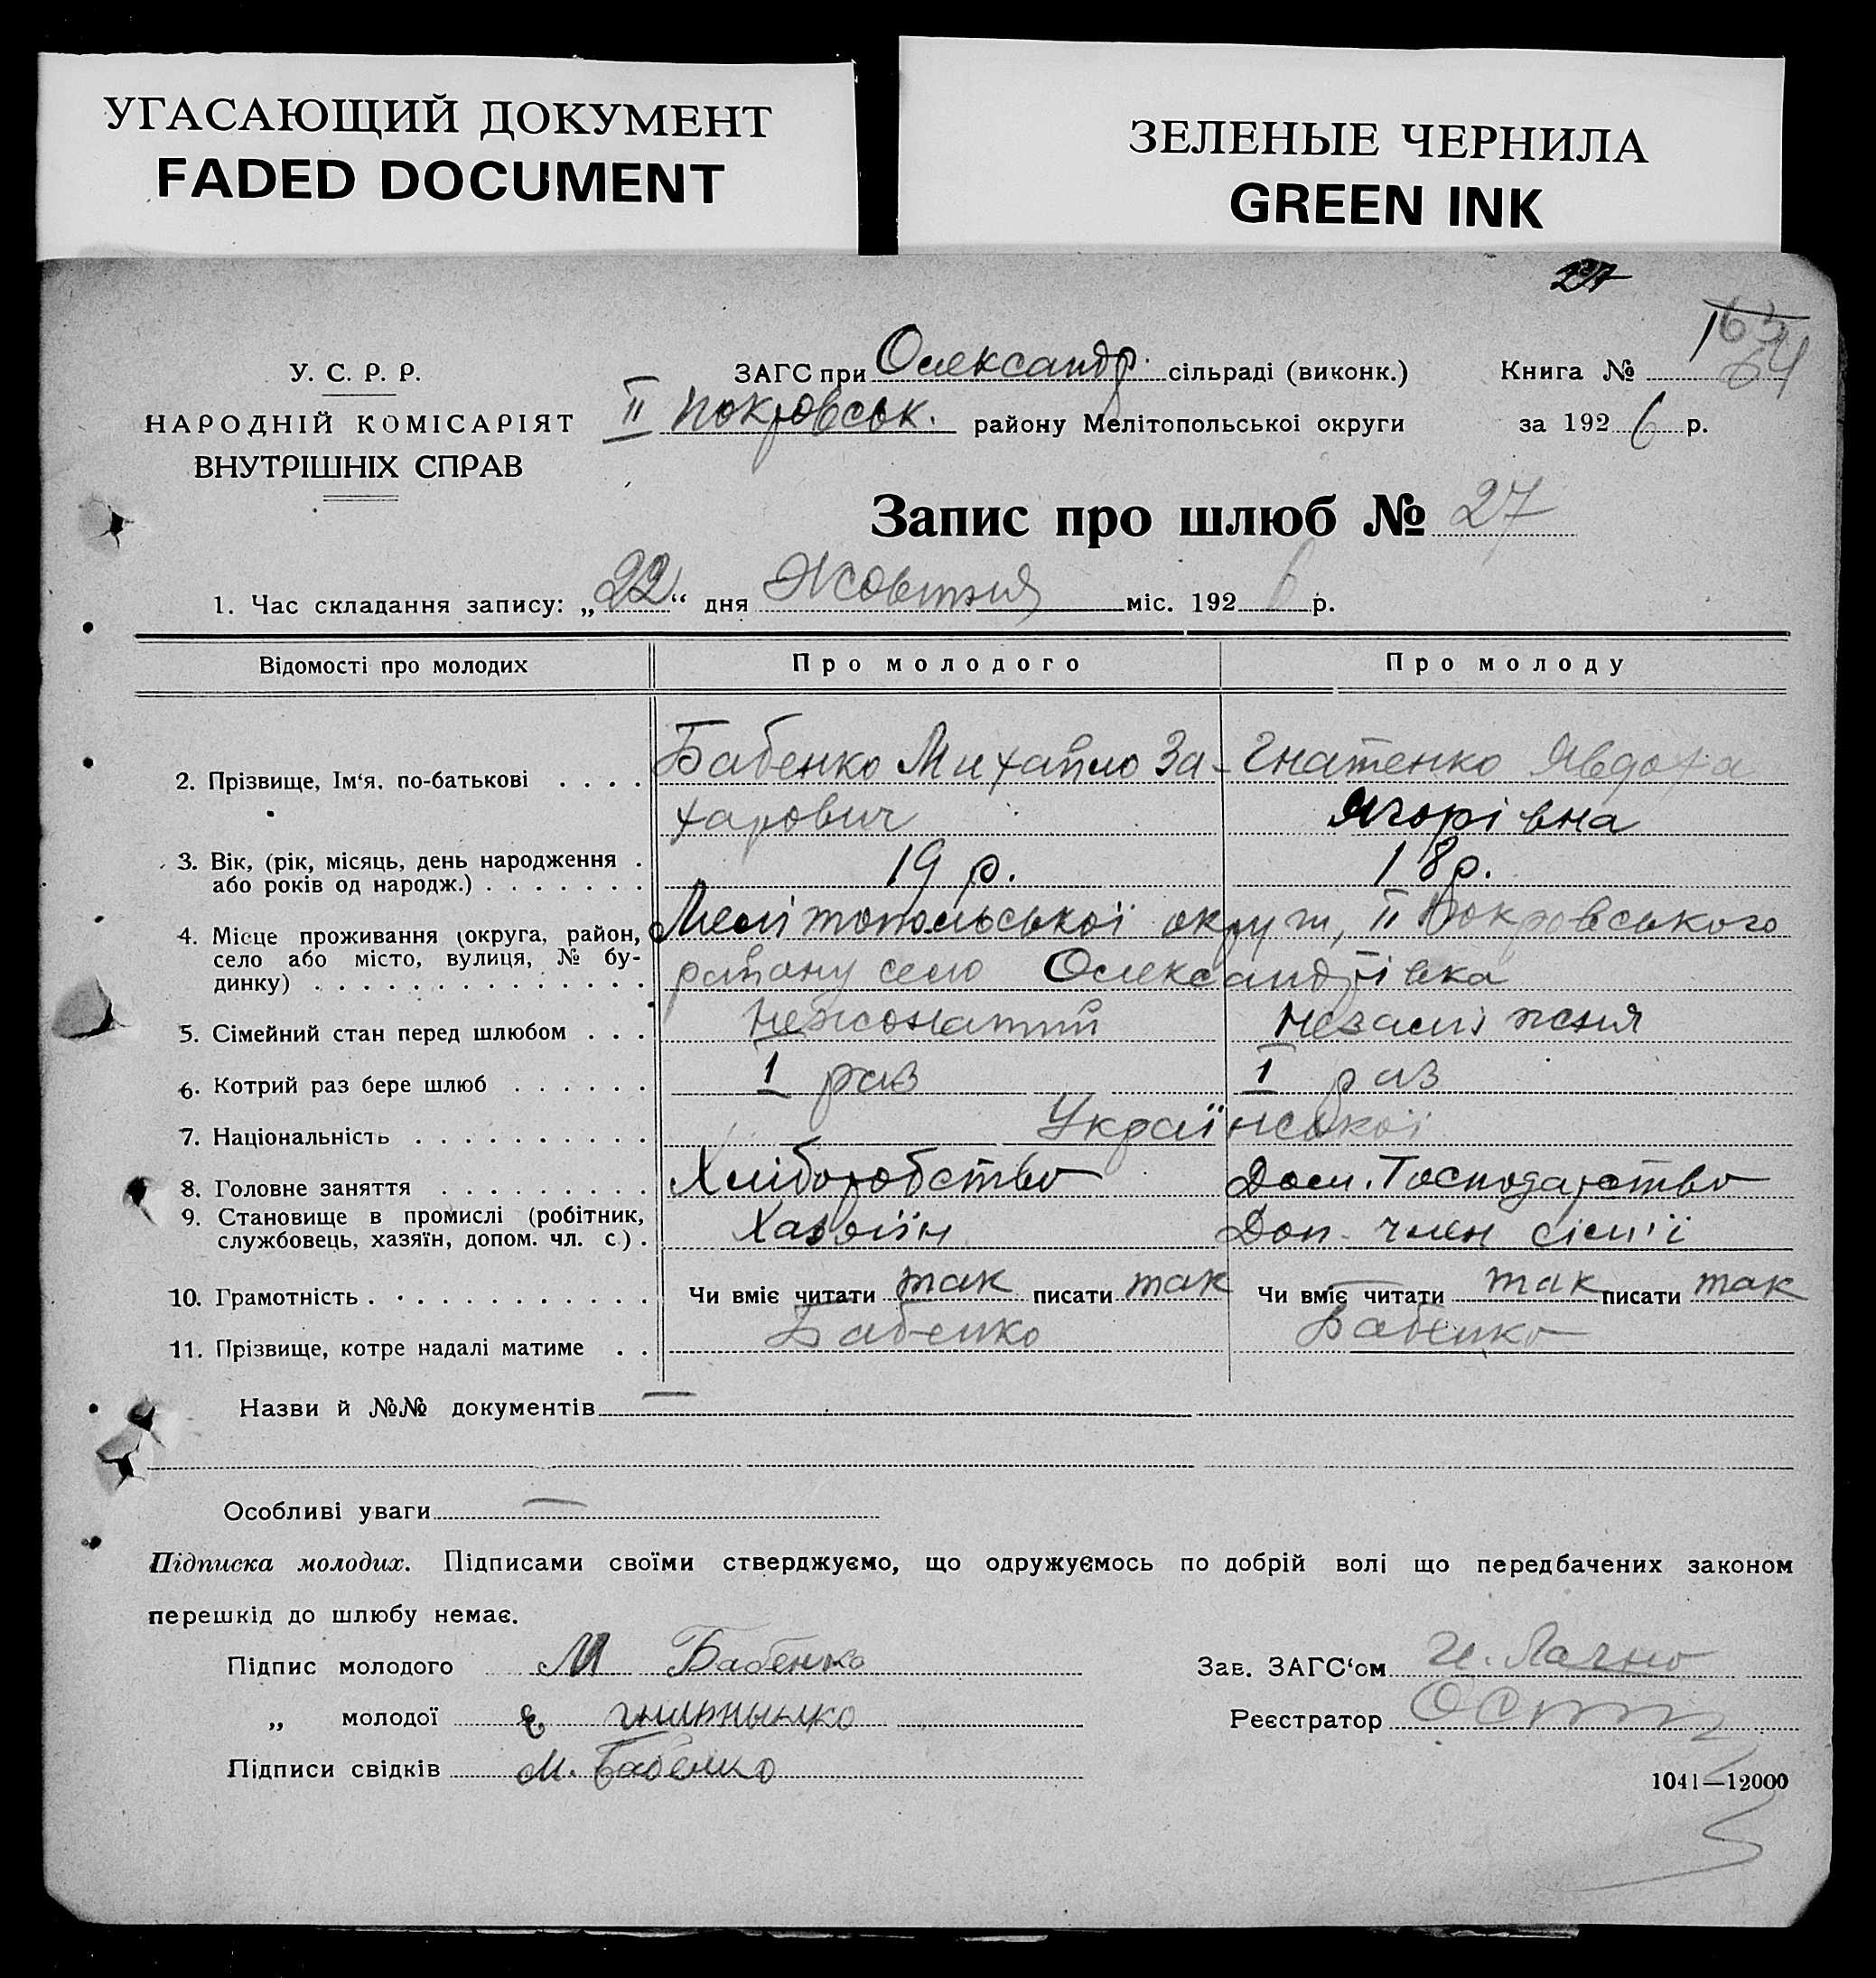 УГАСАЮЩИЙ ДОКУМЕНТ
FADED DOCUMENT
ЗЕЛЕНЫЕ ЧЕРНИЛА
GREEN INK
27
64
У. С. Р. Р.
НАРОДНІЙ КОМІСАРІЯТ
ВНУТРІШНІХ СПРАВ
ЗАГС при Олександр. сільраді (виконк.)
II Покровськ. району Мелітопольської округи
Книга №
за 1926 р.
Запис про шлюб № 27
1. Час складання запису: „22“ дня Жовтня міс. 1926 р.
Відомості про молодих Про молодого Про молоду
2. Прізвище, Ім‘я, по-батькові . . . . Бабенко Михайло За- Гнатенко Явдоха
харович Ягорівна
3. Вік, (рік, місяць, день народження . 19 р. 18 р.
або років од народж.) . . . . . . .
4. Місце проживання (округа, район, Мелітопольської округи, II Покровського
село або місто, вулиця, № бу-
динку) . . . . . . . . . . . . . . . району село Олександрівка
5. Сімейний стан перед шлюбом . . . Нежонатий Незаміжня
6. Котрий раз бере шлюб . . . . . . I раз I раз
7. Національність . . . . . . . . . . Української
8. Головне заняття . . . . . . . . . Хліборобство Дом. Господарство
9. Становище в промислі (робітник,
службовець, хазяїн, допом. чл. с.) . Хазяїн Доп. член сім'ї
10. Грамотність . . . . . . . . . . . . Чи вміє читати так писати так Чи вміє читати так писати так
11. Прізвище, котре надалі матиме . . Бабенко Бабенко
Назви й №№ документів —
Особливі уваги —
Підписка молодих. Підписами своїми стверджуємо, що одружуємось по добрій волі що передбачених законом
перешкід до шлюбу немає.
Підпис молодого М Бабенко
Зав. ЗАГС‘ом
„ молодої
Реєстратор
Підписи свідків М. Бабенко
1041—12000